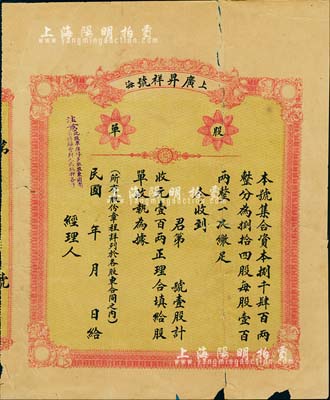 上海陽明拍賣
上海廣昇祥號
股單
本號集合資本捌千肆百兩
整分為捌拾四股每股壹百
兩整一次繳足
今收到
君第 號壹股計
收元壹百兩正理合填給股
單收執為據
(所有股份章程詳列於各股東合同之内)
民國 年 月 日給
經理人
注意
第
號
上海陽明拍賣